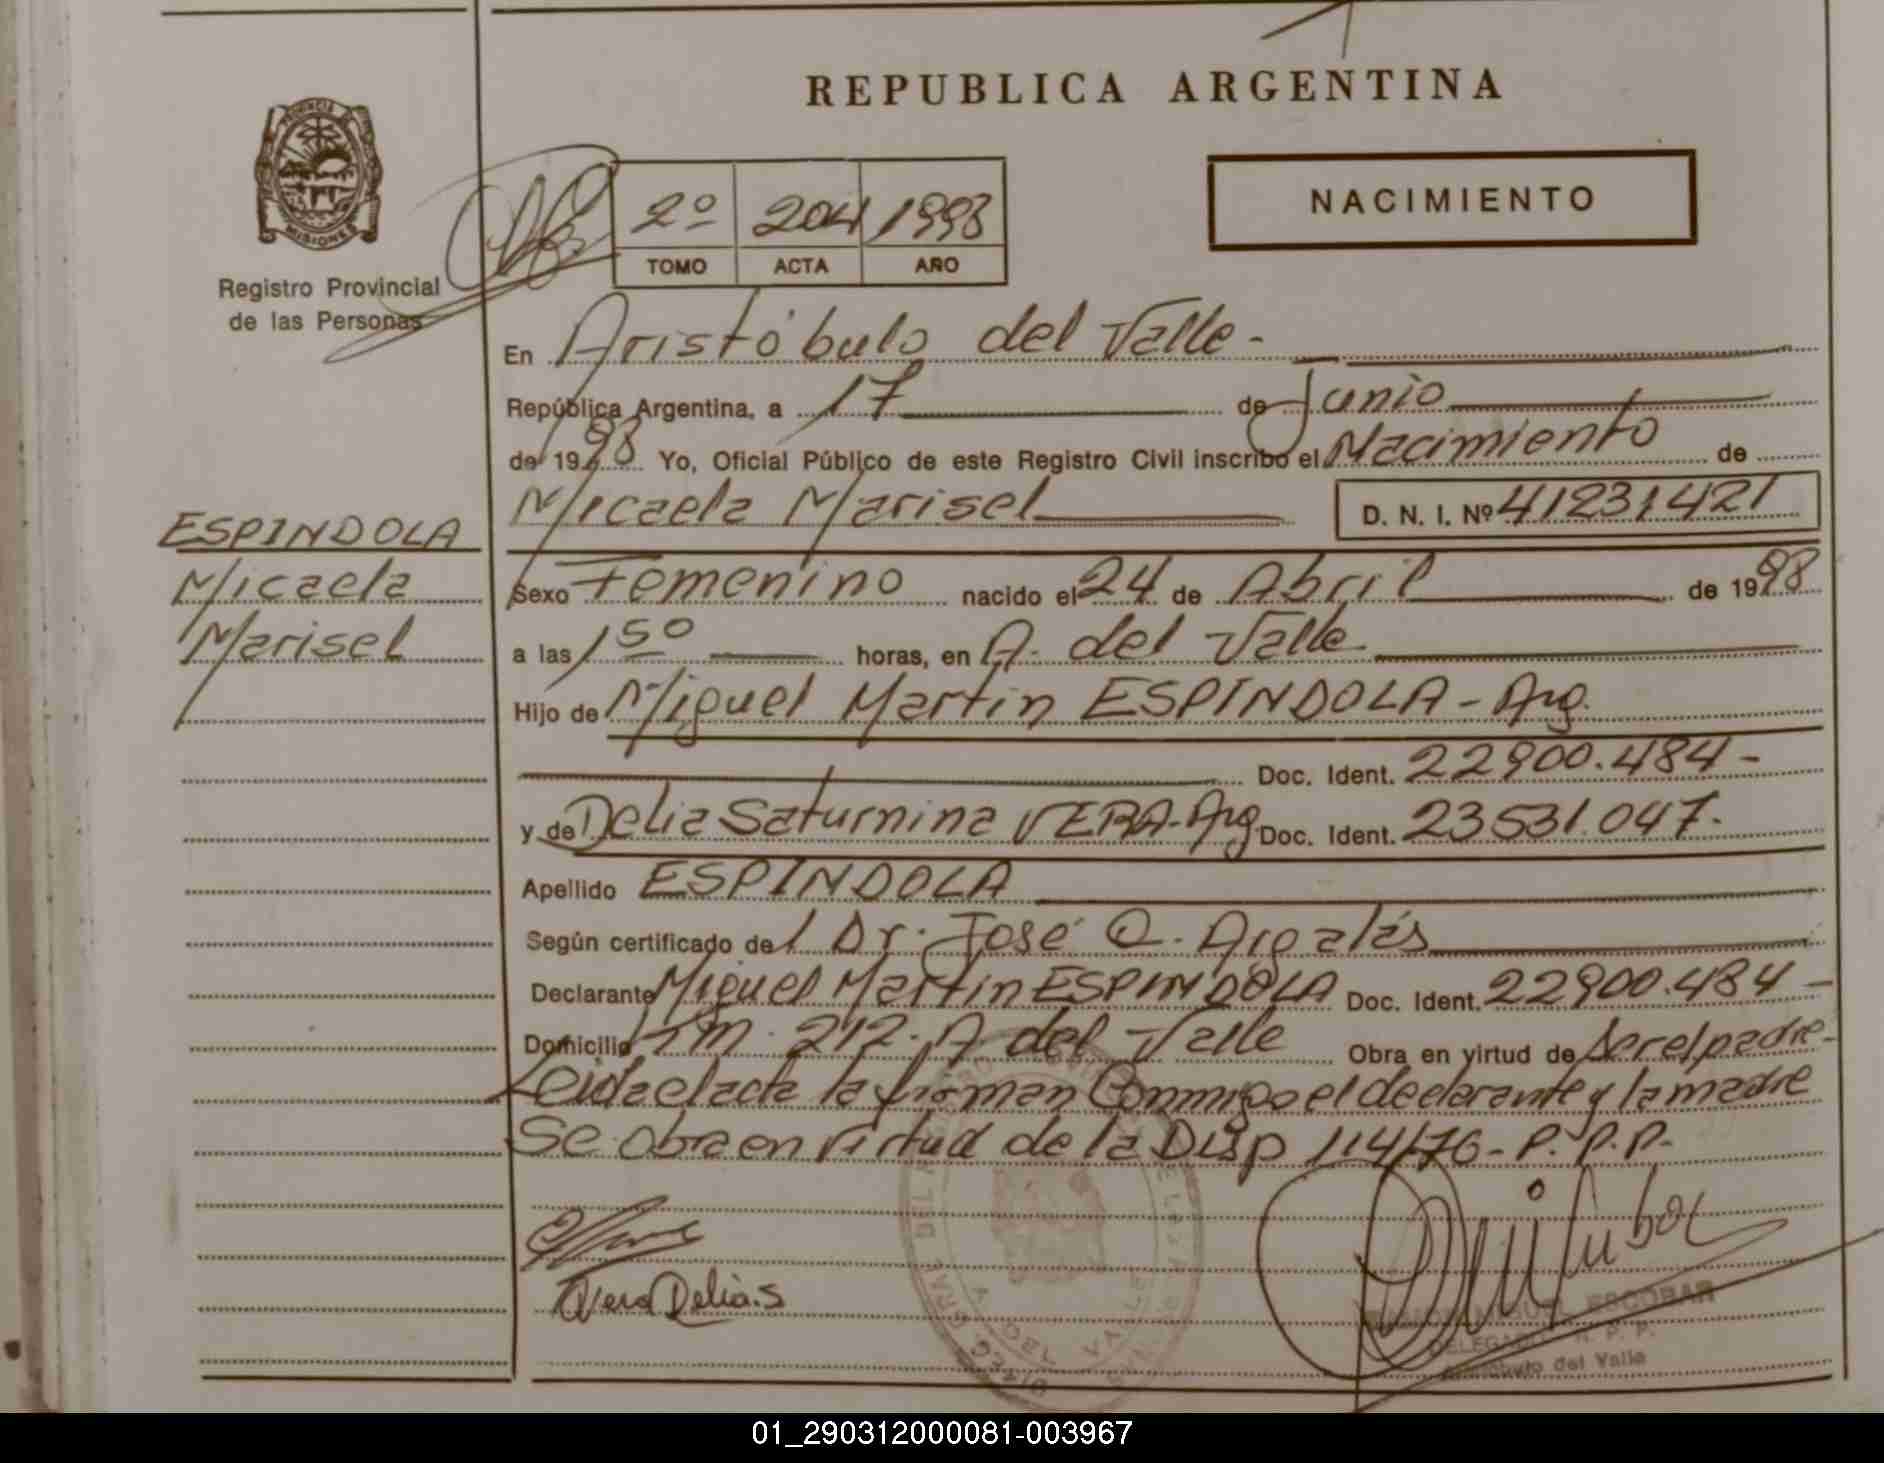 REPUBLICA ARGENTINA
PROVINCIA
MISIONES
Registro Provincial
de las Personas
2º 204 1998
TOMO ACTA AÑO
NACIMIENTO
En Aristóbulo del Valle -
República Argentina, a 17 de Junio
de 1998 Yo, Oficial Público de este Registro Civil inscribo el Nacimiento de
Micaela Marisel D. N. I. Nº 41231421
ESPINDOLA
Micaela
Marisel
Sexo Femenino nacido el 24 de Abril de 1998
a las 1 50 horas, en A. del Valle
Hijo de Miguel Martin ESPINDOLA - Arg.
Doc. Ident. 22900.484 -
y de Delia Saturnina VERA - Arg Doc. Ident. 23531.047.
Apellido ESPINDOLA
Según certificado del Dr. José O.
Declarante Miguel Martin ESPINDOLA Doc. Ident. 22900.484 -
Domicilio 212. A del Valle Obra en virtud de Ser el padre -
Leida el acta la firman Conmigo el declarante y la madre
Se obra en virtud de la Disp 114/76 -
Vera Delia. S
MIGUEL ESCOBAR
DELEGADO R. P. P.
Aristobulo del Valle
01_290312000081-003967